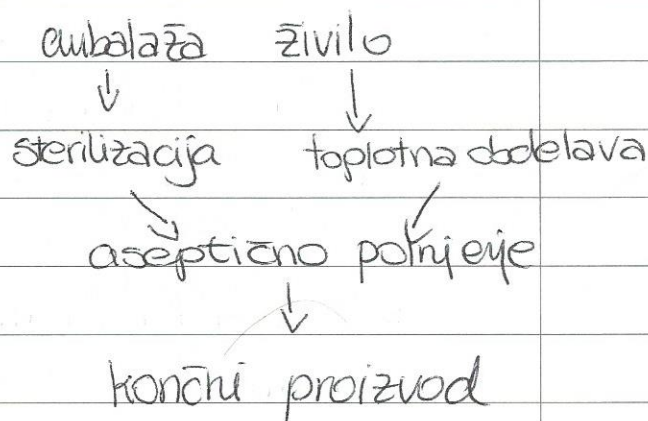 embalaža živilo
sterilizacija toplotna obdelava
aseptično polnjenje
končni proizvod